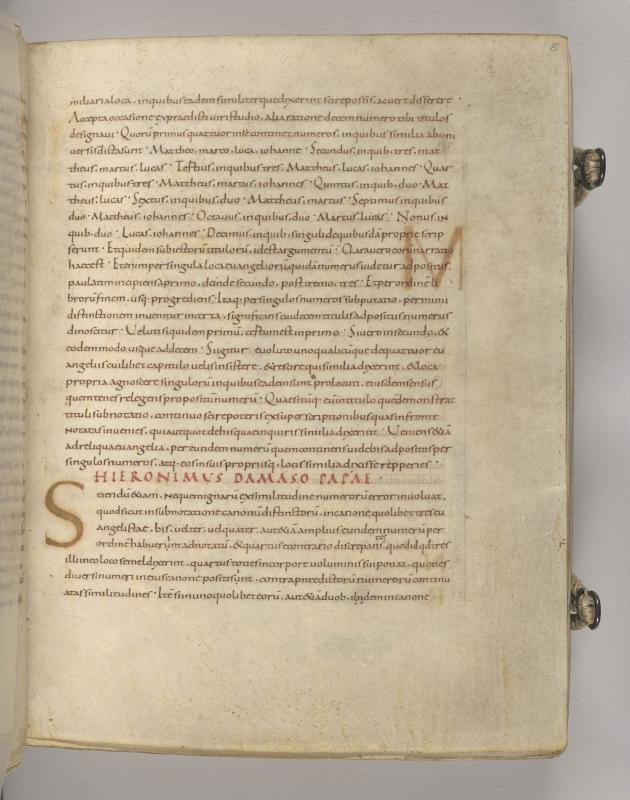 miliaria loca, in quibus eadem similiterque dixerint scire possis, ac vere disserere.
Accepta occasione ex praedicti viri studio, alia ratione decem numero tibi titulos
designavi. Quorū primus quattuor in se continet numeros, in quibus similia
Mattheo, marco, luca, iohanne. Secundus, in quib, tres, mat
theus, marcus, lucas. Tertius, in quibus tres, Mattheus, lucas, iohannes. Quar
tus, in quibus tres. Mattheus, marcus, iohannes. Quintus, in quib, duo. Mat
theus, lucas. Sextus, in quibus, duo. Mattheus, marcus. Septimus in quibus
duo. Mattheus, iohannes. Octavus, in quibus, duo. Marcus, lucas. Nonus, in
quib, duo. Lucas, iohannes. Decimus, in quib, singuli de quibusdā proprie scrip
serunt. Et quidem subiectorū titulorū, id est argumentū. Clara vero eorū narratio
haec est. Etenim per singula loca evangeliorū quidā numerus videtur adpositus,
paulatim incipiens a primo, deinde secundo, post tercio, tres. Et per ordinē li
brorū finem, usq; progrediens. Itaq; per singulos numeros supputatio, per mini
distinctionem invenitur inserta, significans cui decem titulis adpositus numerus
dinoscatur. Veluti siquidem primū, certum est in primo. Si vero in secundo, &
eodem modo usque ad decem. Si igitur evoluto uno qualicūque de quattuor ev
angeliis cuilibet capitulo velis insistere, & rescire qui similia dixerint, & loca
propria agnoscere singulorū in quibus eadem sunt prolocuti, eiusdem sensus
quem tenes relegens propositū numerū. Quaesitūq, eū in titulo quem demonstrat
tituli subnotatio, continuo scire poteris ex superscriptionibus quas in fronte
notatas invenies, qui aut quot de his quae inquiris similia dixerint. Veniens &iā
ad reliqua evangelia, per eundem numerū quem contineri vides adpositos per
singulos numeros, atq, eos in suis propriisq, locis similia dixisse repperies.
HIERONIMUS DAMASO PAPAE
Sciendū &iam, ne quem ignarū ex similitudine numerorū error involvat,
quod sicut in subnotatione canonū distinctorū, in canone quolibet tres ev
angelistae, bis, vel ter, vel quater, aut &iā amplius eundem numerū per
ordinē habuerint adnotatū, & quartus e contrario discrepans, quod id qd tres
illi in eo loco semel dixerint, quartus toties in corpore voluminis sui ponat, quoties
diversi numeri in eius canone positi sunt, contra praedictorū numerorū continu
atas similitudines. Itē si in uno quolibet eorū, aut &iā duob, ibidem in canone